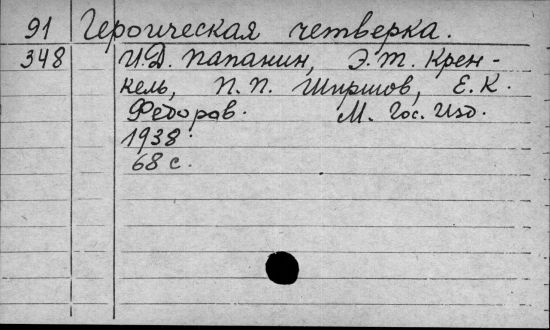 91 Героическая четверка.
348 И.Д. Папанин, Э.Т. Крен-
кель, П.П. Ширшов, Е.К.
Федоров. М. Гос. Изд.
1938.
68 с.